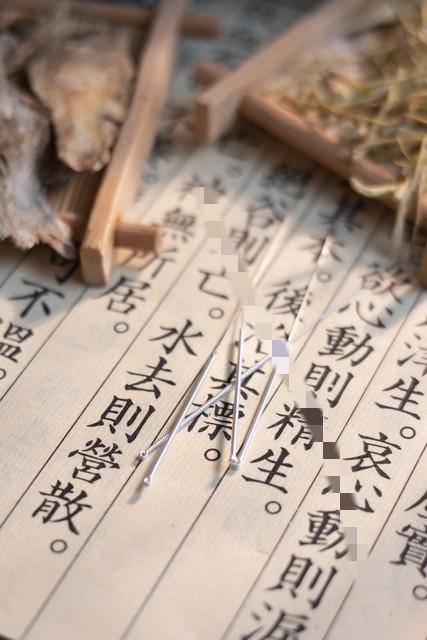 實。
生。哀心動則淚
欲心動則精生。
其本。後其標。
絕谷則亡。水去則營散。
無所居。
不溫。